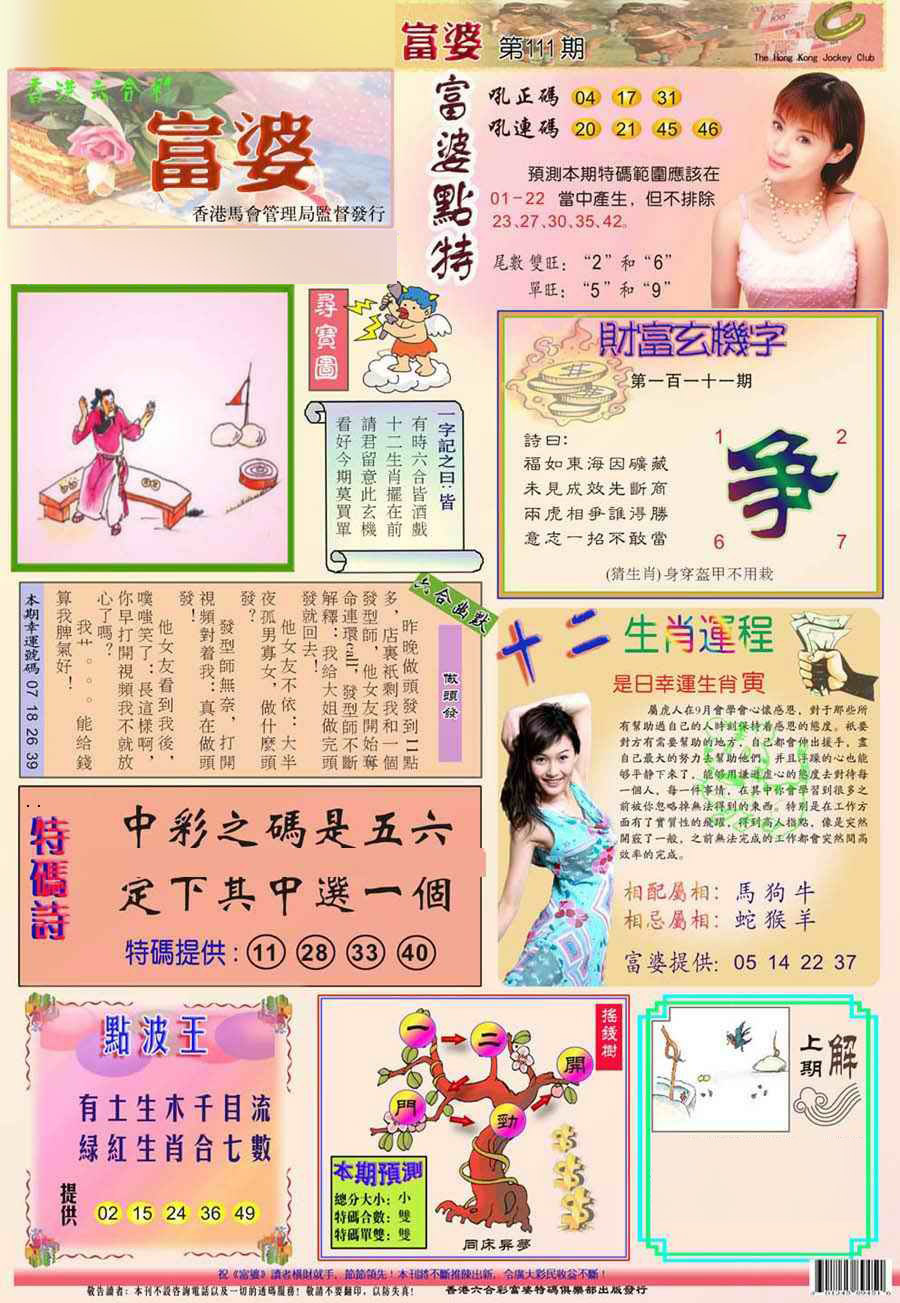 富婆 第111期
The Hong Kong Jockey Club
香港六合彩
富婆
香港馬會管理局監督發行
富婆點特
吼正碼 04 17 31
吼連碼 20 21 45 46
預測本期特碼範圍應該在
01-22 當中產生，但不排除
23、27、30、35、42。
尾數雙旺：“2”和“6”
單旺：“5”和“9”
尋寶圖
一字記之曰：皆
有時六合皆酒戲
十二生肖擺在前
請君留意此玄機
看好今期莫買單
財富玄機字
第一百一十一期
詩曰：
福如東海因礦藏
未見成效先斷商
兩虎相爭誰得勝
意志一招不敢當
1 2
爭
6 7
(猜生肖)身穿盔甲不用栽
六合幽默
做頭發
昨晚做頭發到11點
多，店裏衹剩我和一個
發型師，他女友開始奪
命連環call，發型師不斷
解釋：我給大姐做完頭
發就回去！
他女友不依：大半
夜孤男寡女，做什麼頭
發？
發型師無奈，打開
視頻對着我：真在做頭
發！
他女友看到我後，
噗嗤笑了：長這樣啊，
你早打開視頻我不就放
心了嗎？
我艹。。。能給錢
算我脾氣好！
本期幸運號碼 07 18 26 39
十二生肖運程
是日幸運生肖 寅
屬虎人在9月會學會心懷感恩，對于那些所
有幫助過自己的人時刻保持着感恩的態度。衹要
對方有需要幫助的地方，自己都會伸出援手，盡
自己最大的努力去幫助他們，并且浮躁的心也能
够平静下來了，能够用謙遜虛心的態度去對待每
一個人，每一件事情，在其中你會學習到很多之
前被你忽略掉無法得到的東西。特別是在工作方
面有了實質性的飛躍，得到高人指點，像是突然
開竅了一般，之前無法完成的工作都會突然間高
效率的完成。
相配屬相：馬 狗 牛
相忌屬相：蛇 猴 羊
富婆提供：05 14 22 37
特碼詩
中彩之碼是五六
定下其中選一個
特碼提供：11 28 33 40
點波王
有土生木千目流
綠紅生肖合七數
提供 02 15 24 36 49
搖錢樹
一 二 開 門 勁
本期預測
總分大小：小
特碼合數：雙
特碼單雙：雙
同床异夢
上期解
祝《富婆》讀者橫財就手，節節領先！本刊將不斷推陳出新，令廣大彩民收益不斷！
敬告讀者：本刊不設咨詢電話以及一切的透碼服務！敬請不要翻印，以防失真！
香港六合彩富婆特碼俱樂部出版發行